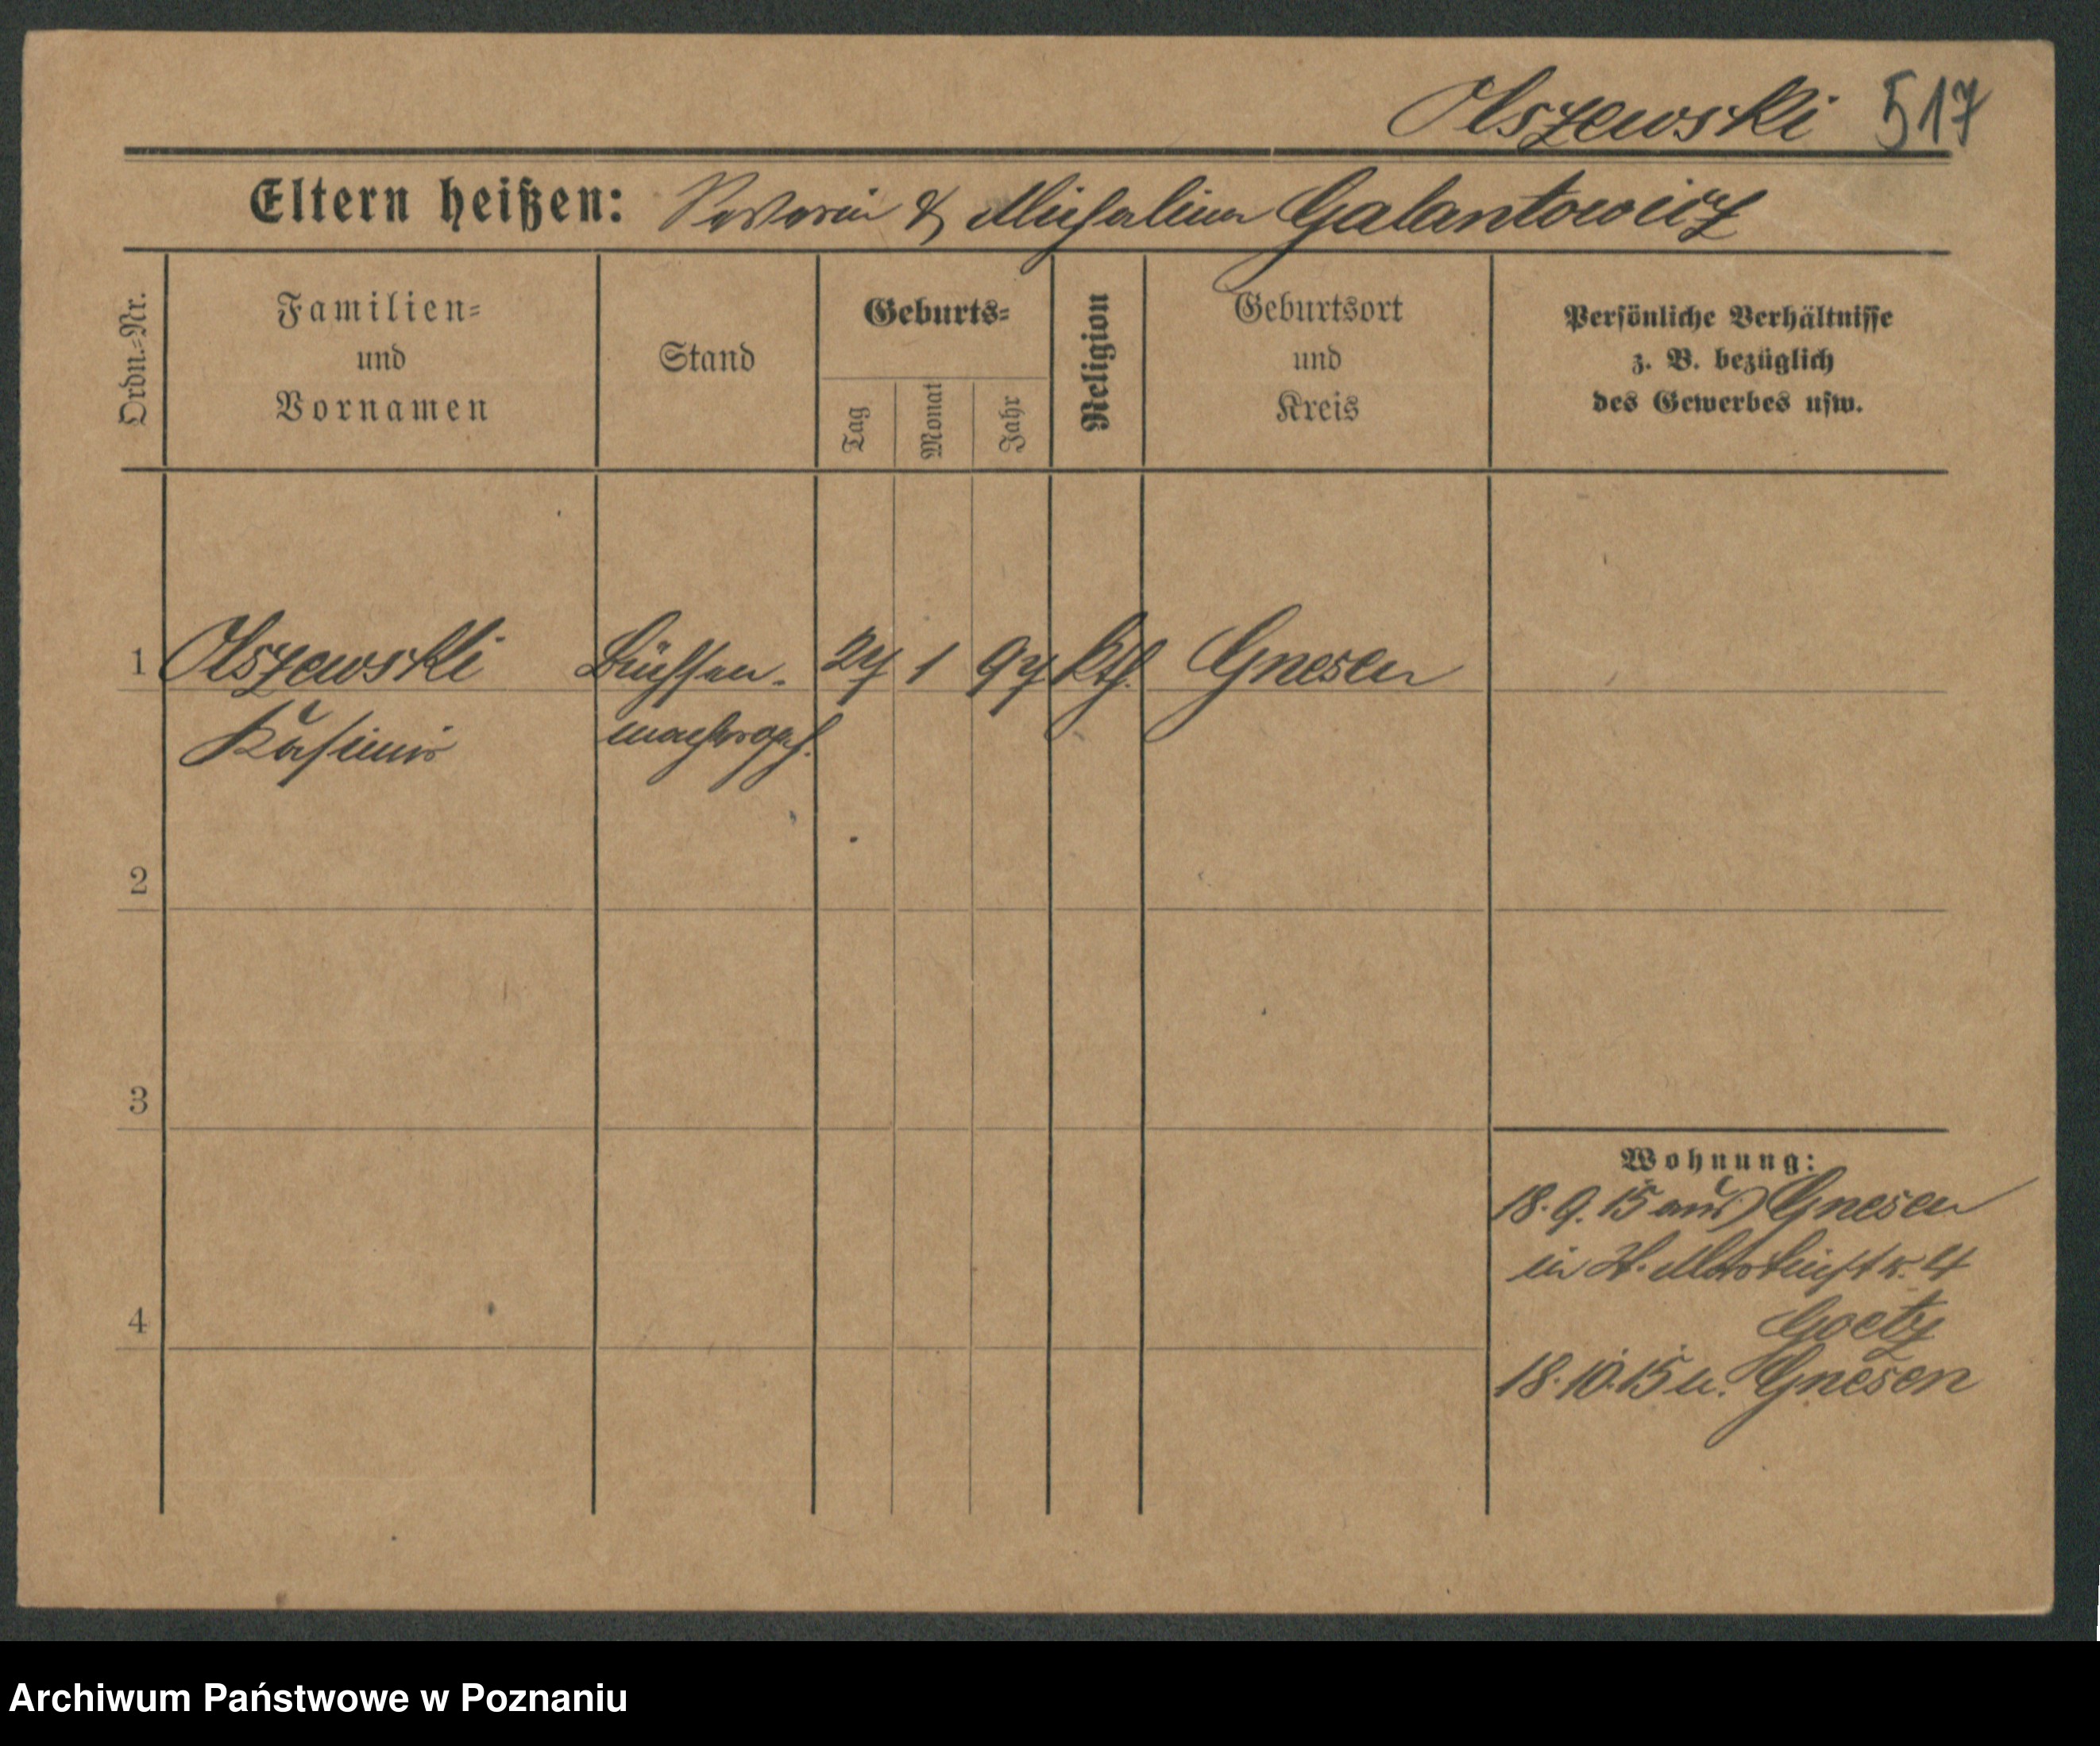 Olszewski 517
Eltern heißen: Severin & Michalina Galantowicz
Ordn.-Nr.
Familien-
und
Vornamen
Stand
Geburts-
Tag
Monat
Jahr
Religion
Geburtsort
und
Kreis
Persönliche Verhältnisse
z. B. bezüglich
des Gewerbes usw.
1 Olszewski Büchsen- 27 1 97 kth. Gnesen
Kasimir
2
3
4
Wohnung:
18.9.15 aus Gnesen
in St. Martinstr. 4
Goetz
18.10.15 n. Gnesen
Archiwum Państwowe w Poznaniu